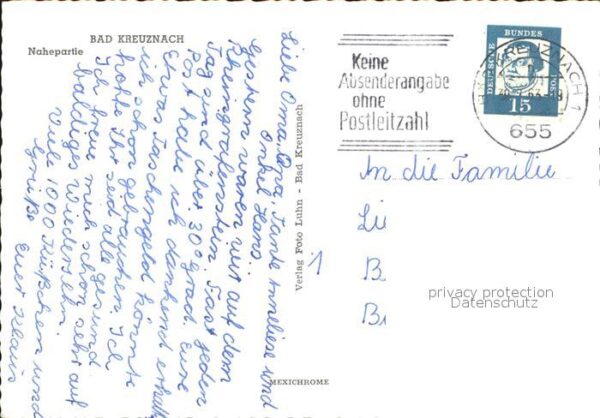 BAD KREUZNACH
Nahepartie
Liebe Oma, Opa, Tante Anneliese und
Onkel Hans.
Gestern waren wir auf dem
Rheingrafenstein. Fast jeden
Tag sind über 30 grad. Eure
Post habe ich dankend erhalten
Etwas Taschengeld könnte
ich schon gebrauchen. Ich
hoffe Ihr seid alle gesund.
Ich freue mich schon sehr auf
baldiges Wiedersehn.
Viele 1000 Küßchen und
Grüße Euer Klaus
Verlag Foto Luhn - Bad Kreuznach
MEXICHROME
Keine
Absenderangabe
ohne
Postleitzahl
DEUTSCHE BUNDESPOST
15
BAD KREUZNACH 1
655
An die Familie
Li
B
B
1
privacy protection
Datenschutz